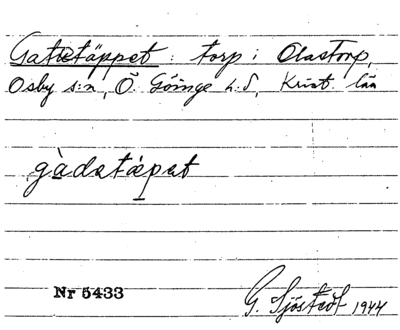 Gatetäppet: torp i Olastorp,
Osby s:n, Ö. Göinge h:d, Krist. län
gàdatäpat
Nr 5433
G. Sjöstedt 1944